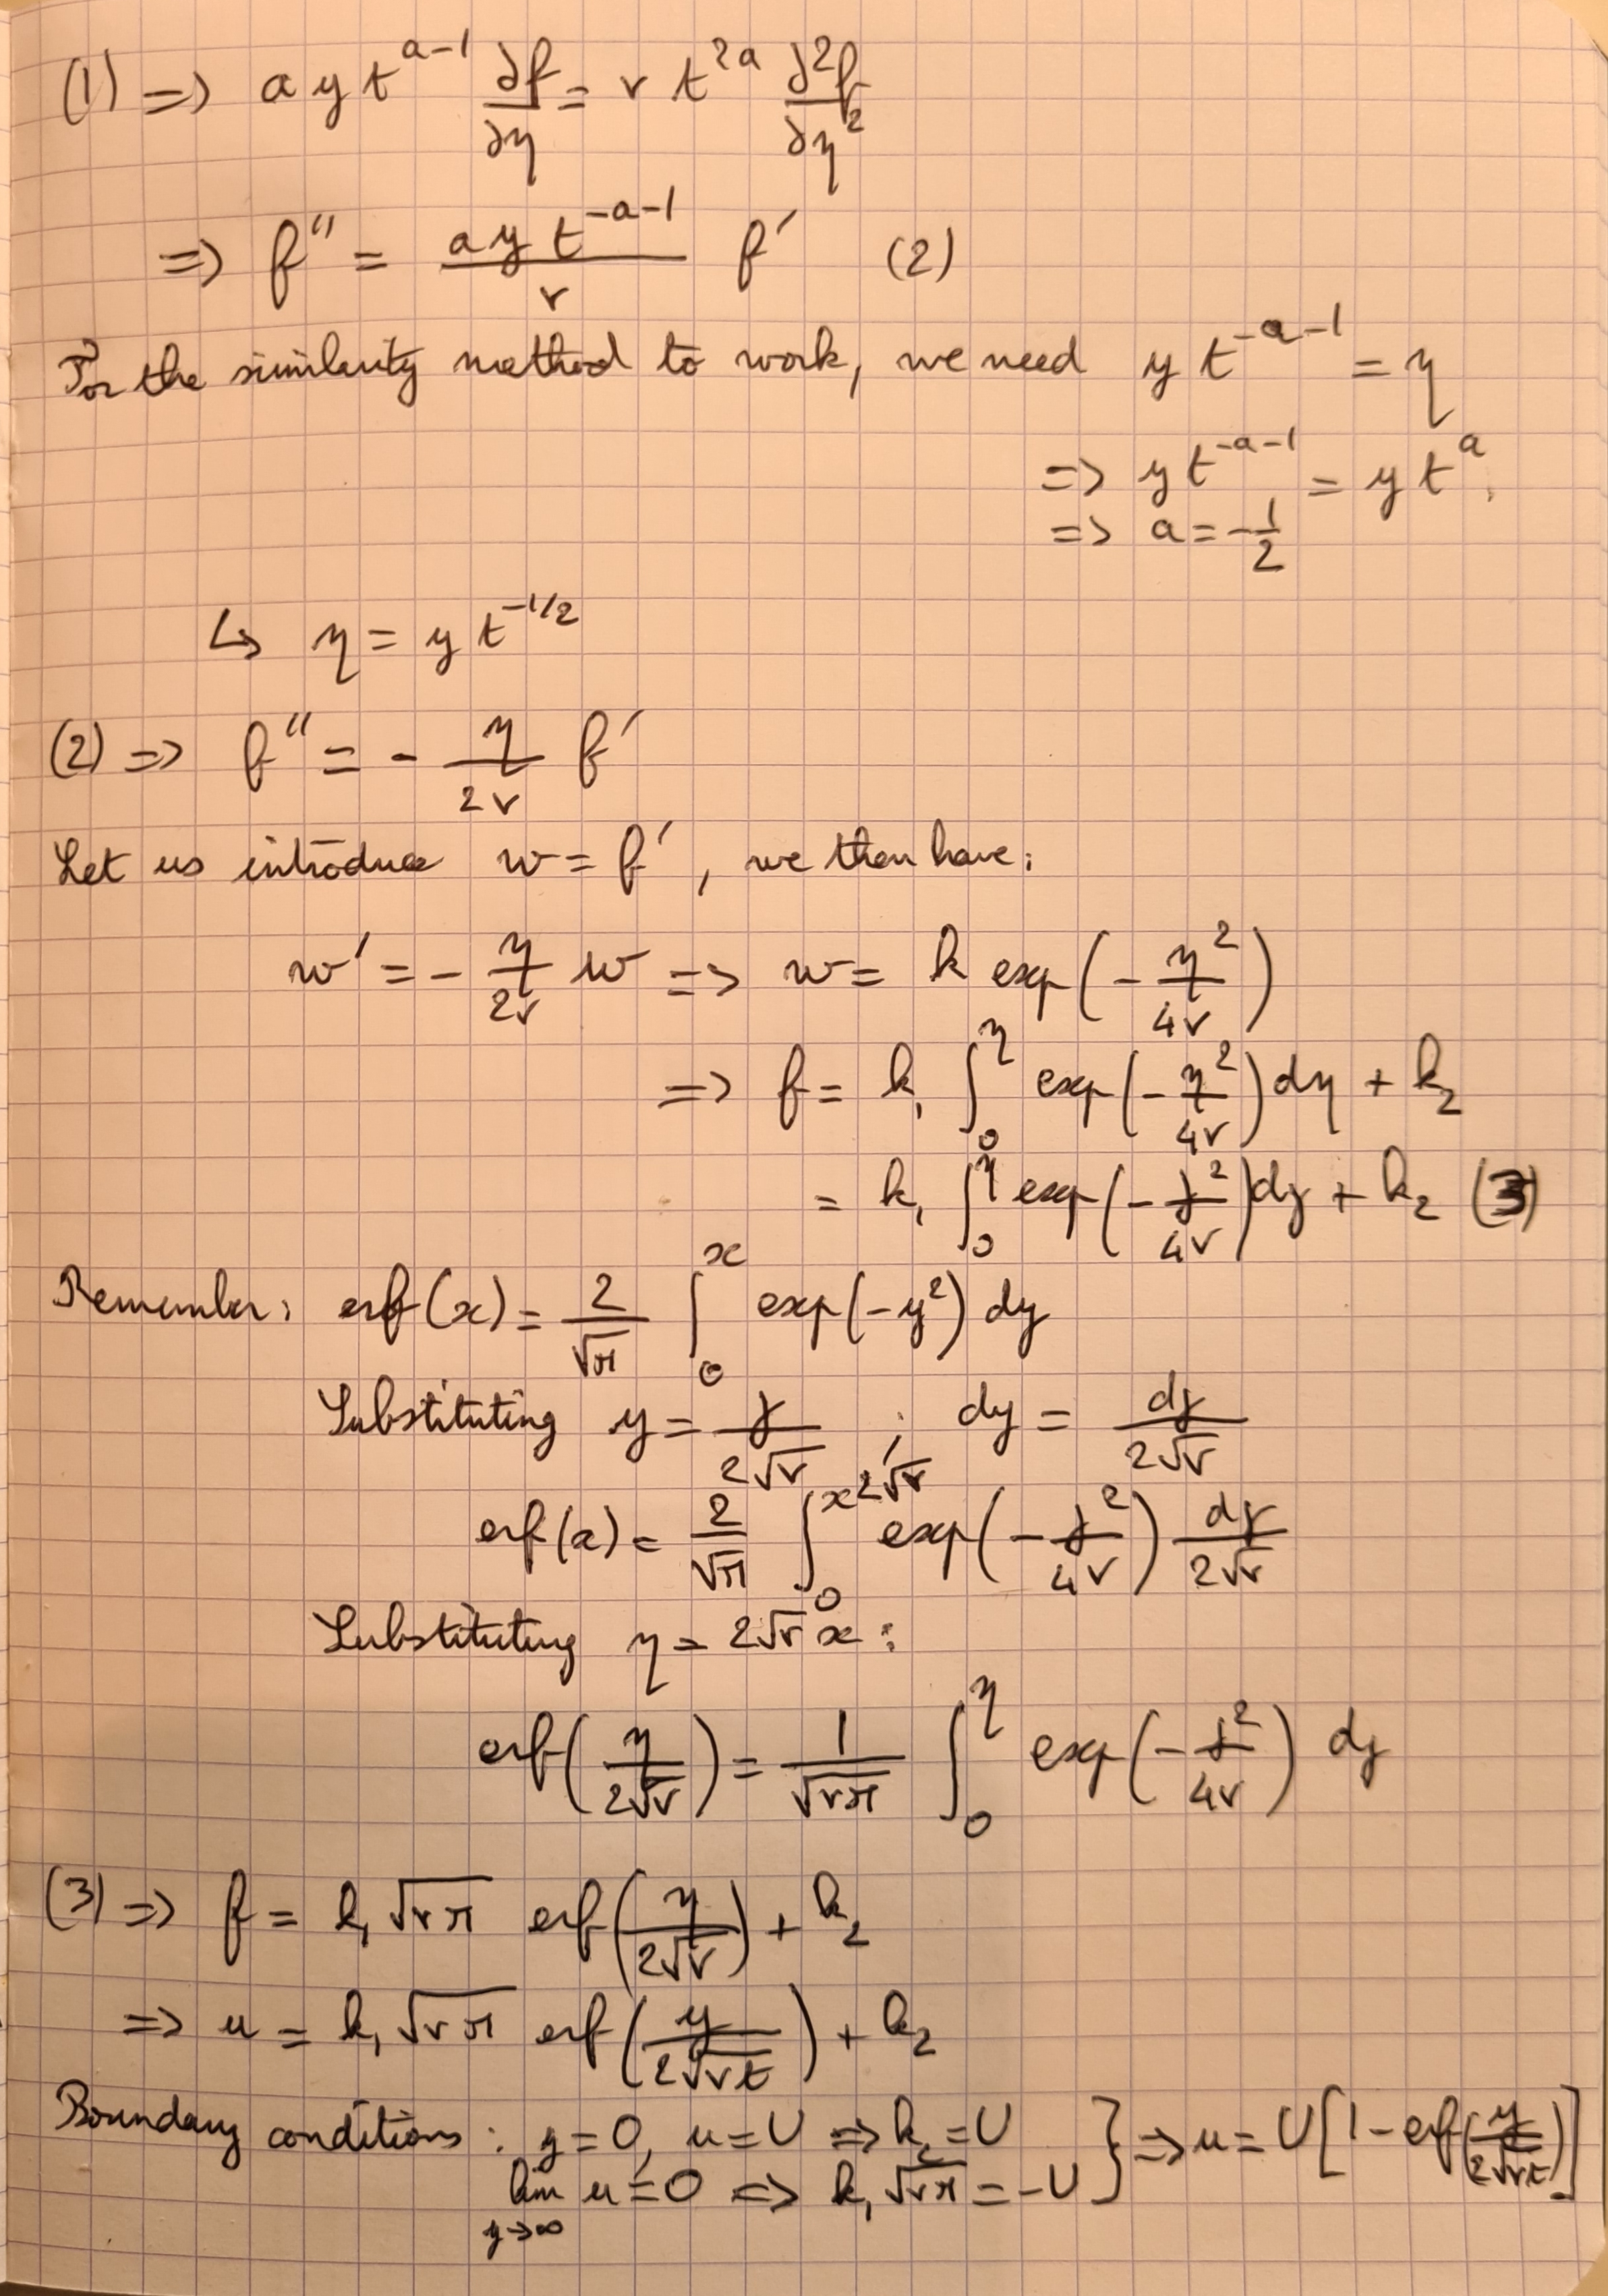 (1) => a y t^{a-1} ∂f/∂η = ν t^{2a} ∂²f/∂η²
=> f'' = (a y t^{-a-1})/ν f' (2)
For the similarity method to work, we need y t^{-a-1} = η
=> y t^{-a-1} = y t^a.
=> a = -1/2
↳ η = y t^{-1/2}
(2) => f'' = - η/(2ν) f'
Let us introduce w = f', we then have:
w' = - η/(2ν) w => w = k exp(- η²/(4ν))
=> f = k₁ ∫_0^η exp(- η²/(4ν)) dη + k₂
= k₁ ∫_0^η exp(- z²/(4ν)) dz + k₂ (3)
Remember: erf(x) = 2/√π ∫_0^x exp(-y²) dy
Substituting y = z/(2√ν) ; dy = dz/(2√ν)
erf(x) = 2/√π ∫_0^{x2√ν} exp(- z²/(4ν)) dz/(2√ν)
Substituting η = 2√ν x:
erf(η/(2√ν)) = 1/√(νπ) ∫_0^η exp(- z²/(4ν)) dz
(3) => f = k₁ √(νπ) erf(η/(2√ν)) + k₂
=> u = k₁ √(νπ) erf(y/(2√(νt))) + k₂
Boundary conditions : y = 0, u = U => k₂ = U } => u = U[1 - erf(y/(2√(νt)))]
lim_{y→∞} u = 0 => k₁ √(νπ) = -U